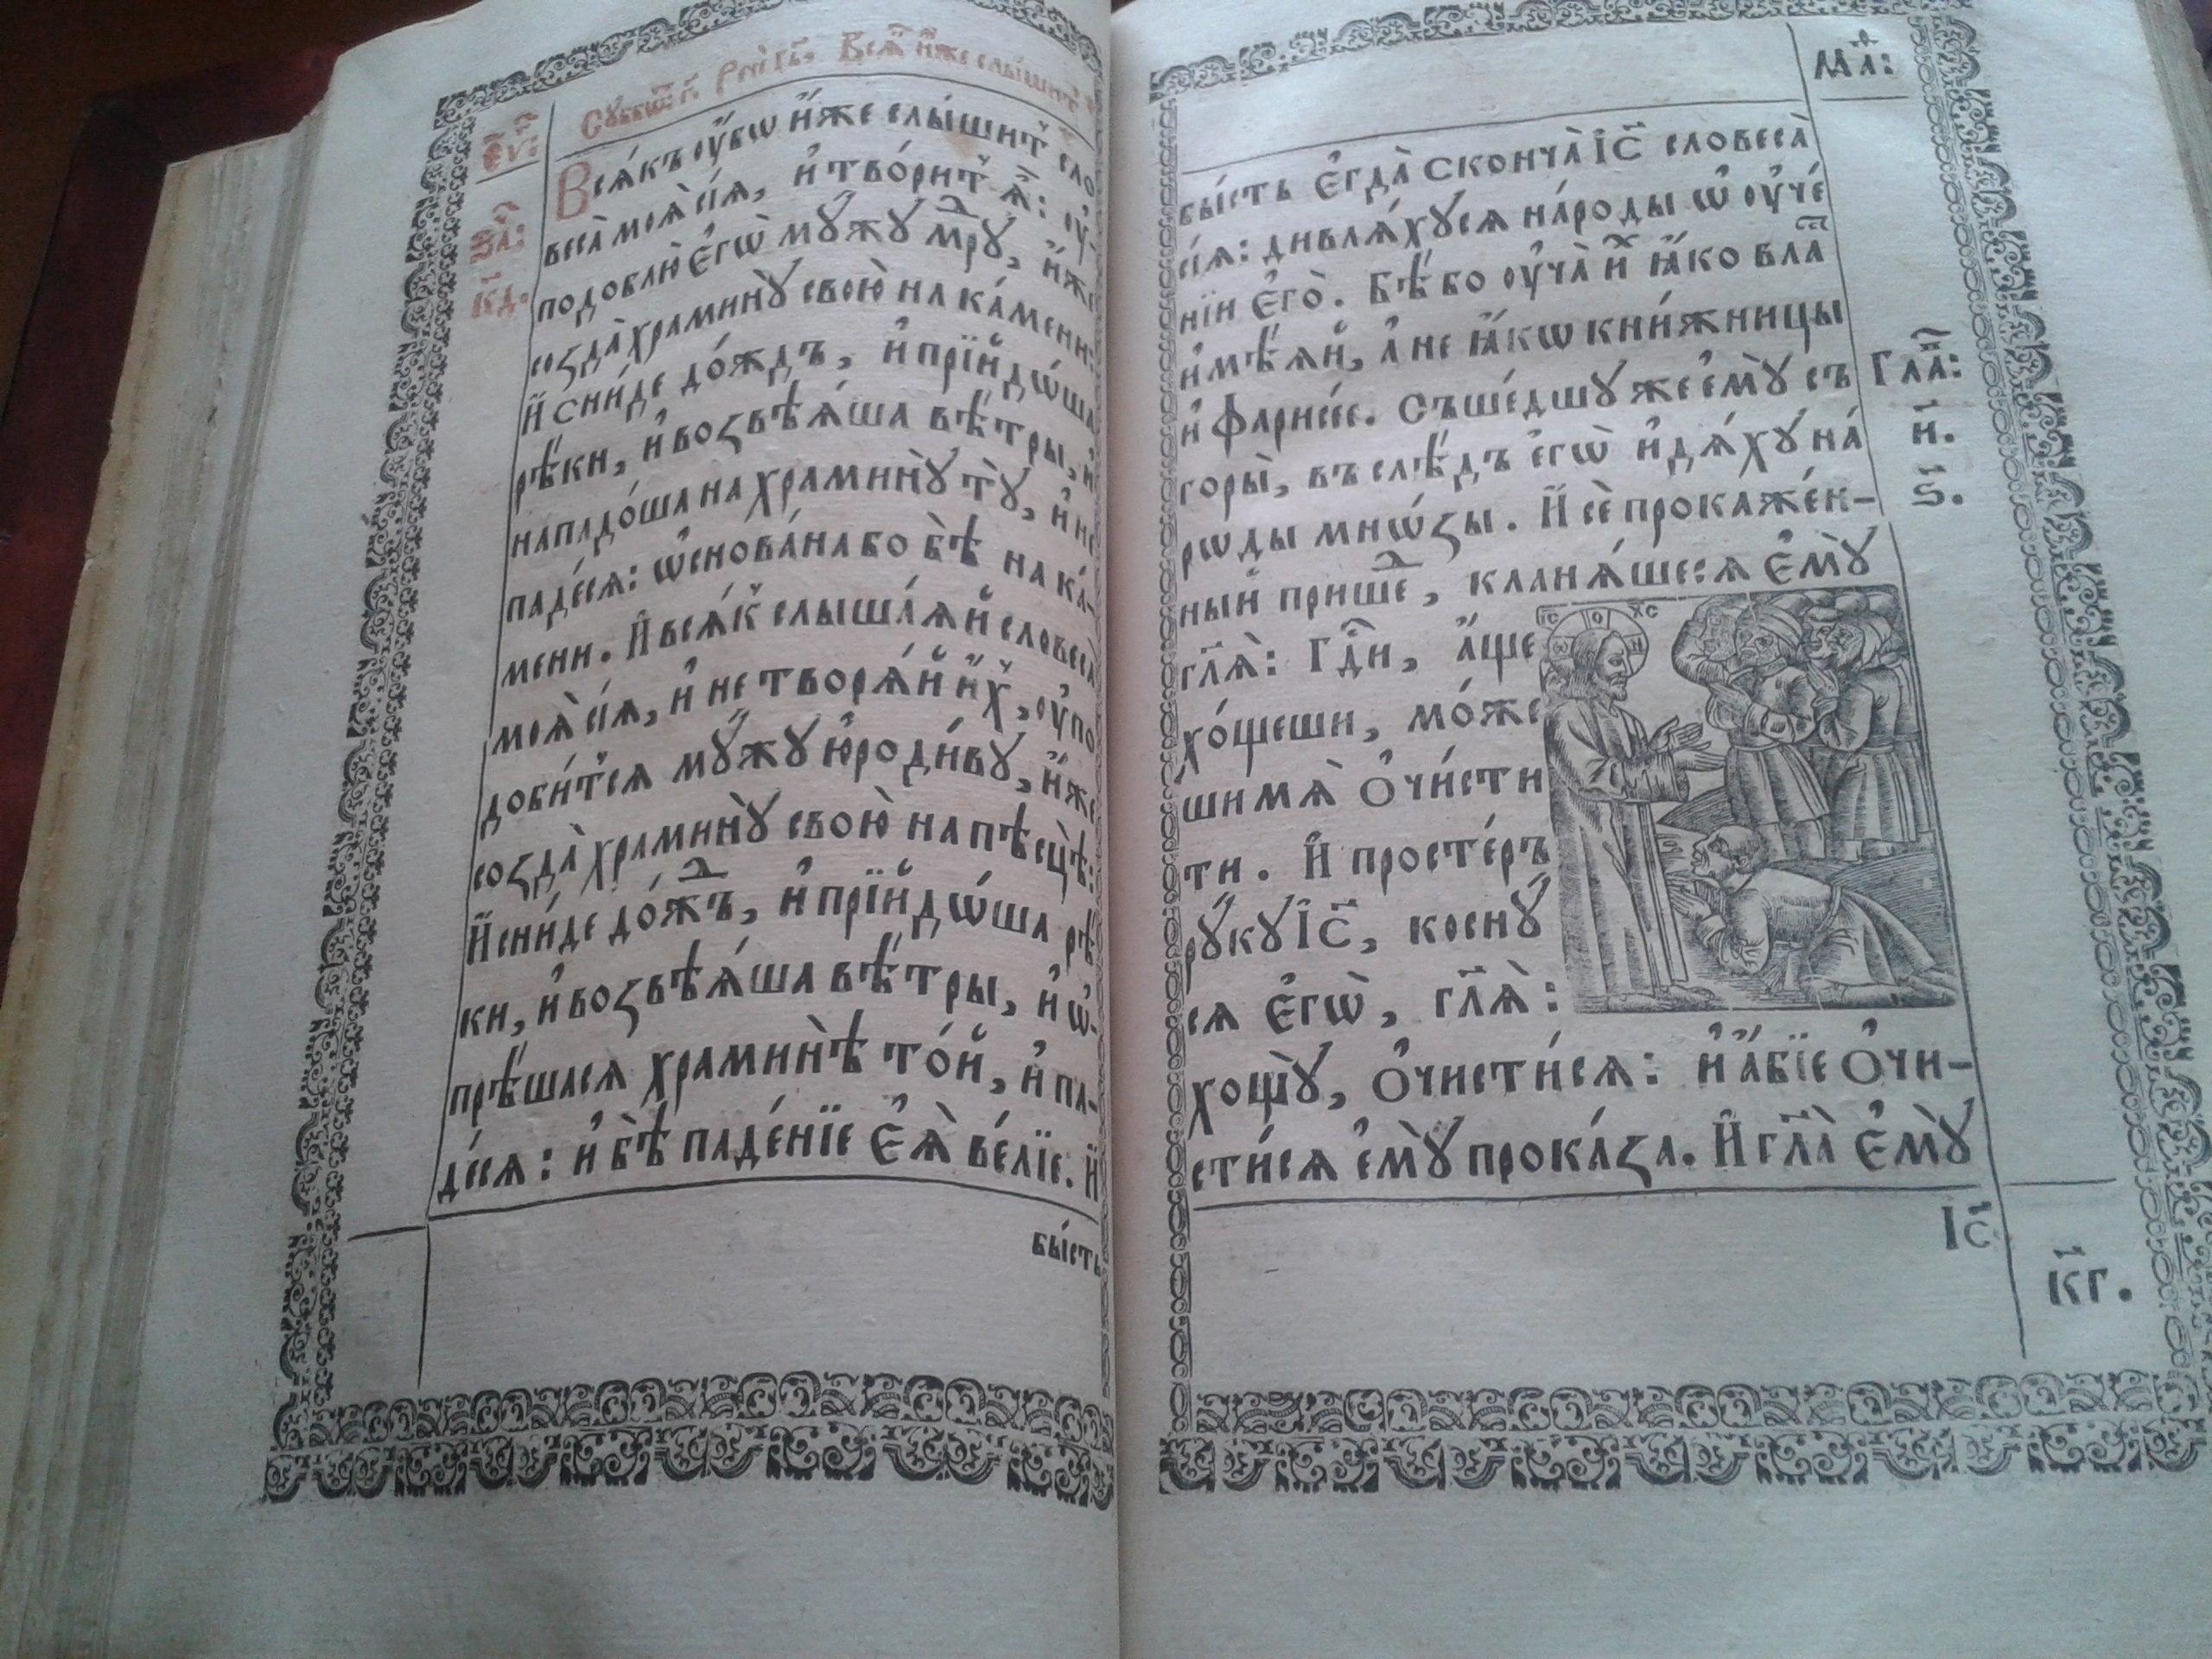 Вся҃ и҆́же слы́шит
Є҆ѵ҃:
За҃:
к҃д.
Всѧ́къ ᲂу҆́бѡ и҆́же слы́шит сло
веса̀ моѧ̀ сїѧ̀, и҆ тво́рит ѧ҆̀: ᲂу҆-
подоблю̀ є҆гѡ̀ мꙋ́жꙋ мⷣрꙋ, и҆́же
созда̀ храминꙋ̀ свою̀ на ка́мени:
И҆ сни́де до́ждъ, и҆ прїйдѡ́ша
рѣ́ки, и҆ возвѣѧ́ша вѣ́тры, и҆
нападо́ша на храминꙋ̀ тꙋ̀, и҆ не
паде́сѧ: ѡ҆снова́на бо бѣ̀ на ка́-
мени. И҆ всѧ́к слыша́ѧй словеса̀
моѧ̀ сїѧ̀, и҆ не творѧ́й и҆́х, ᲂу҆по
доби́тсѧ мꙋ́жꙋ ю҆роди́вꙋ, и҆́же
созда̀ храминꙋ̀ свою̀ на пѣсцѣ̀:
И҆ сни́де до́жⷣъ, и҆ прїйдѡ́ша рѣ
ки, и҆ возвѣѧ́ша вѣ́тры, и҆ ѡ҆-
прѣ́шасѧ храминѣ̀ то́й, и҆ па-
де́сѧ: и҆ бѣ̀ паде́нїе є҆ѧ̀ ве́лїе. И҆
бы́сть
Мⷴа:
бы́сть є҆гда̀ сконча̀ І҆С҃ словеса̀
сїѧ̀: дивлѧ́хꙋсѧ наро́ды ѡ҆ ᲂу҆че́
нїи є҆го̀. Бѣ́ бо ᲂу҆ча̀ и҆̀х ꙗ҆́ко влаⷭ
и҆мѣ́ѧй, а҆ не ꙗ҆́кѡ кни́жницы
и҆ фарисе́е. Съше́дшꙋ же є҆мꙋ̀ съ
Гла҃:
и҃.
горы̀, въ слѣ́дъ є҆гѡ̀ и҆дѧ́хꙋ на́
ѕ҃.
рѡды мнѡ́зы. И҆ сѐ прокаже́н-
ный прише́ⷣ, кланѧ́шесѧ є҆мꙋ̀
гл҃ѧ: Гдⷭ҇и, а҆́ще
хо́щеши, мо́же
ши мѧ̀ ѻ҆чи́сти
ти. И҆ просте́ръ
рꙋ́кꙋ І҆С҃, коснꙋ́
сѧ є҆гѡ̀, гл҃ѧ:
хощꙋ̀, ѻ҆чисти́сѧ: и҆ а҆́бїе ѻ҆чи-
сти́сѧ є҆мꙋ̀ прока́за. И҆ гл҃а є҆мꙋ̀
ІС
ХС
І҆С҃
к҃г.